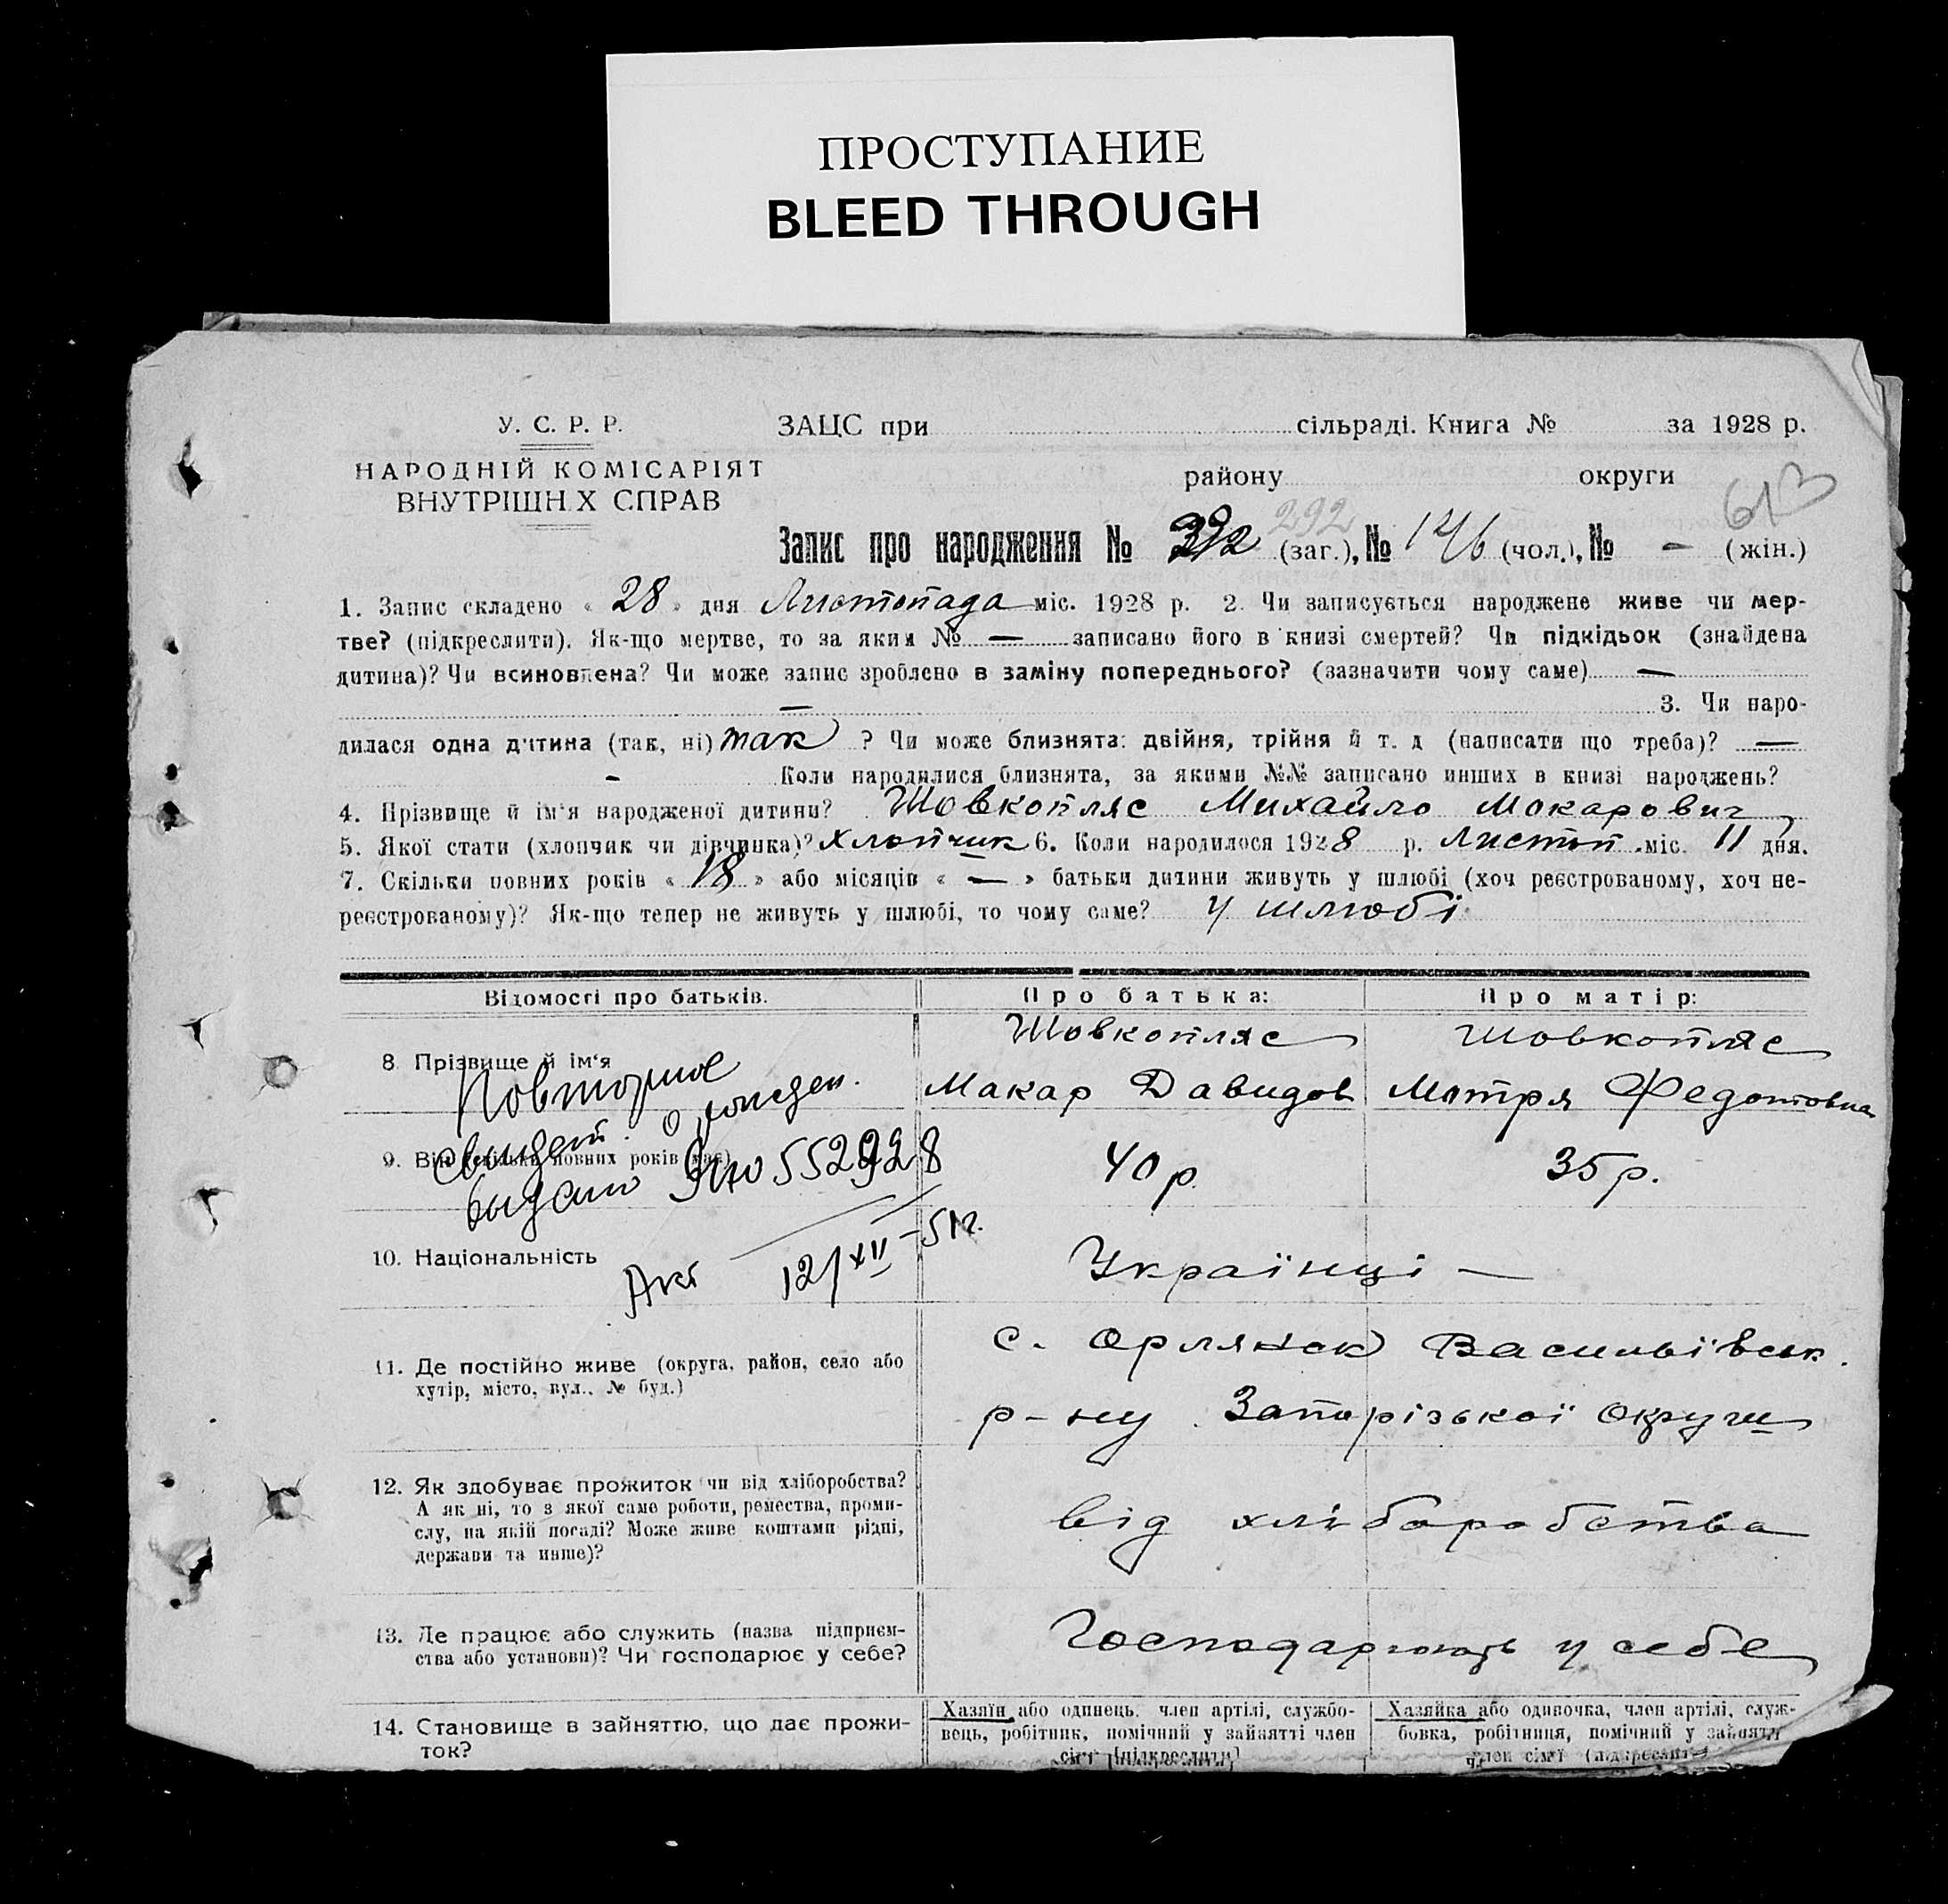 ПРОСТУПАНИЕ
BLEED THROUGH
У. С. Р. Р.
ЗАЦС при сільраді. Книга № за 1928 р.
НАРОДНІЙ КОМІСАРІЯТ
ВНУТРІШН Х СПРАВ
району округи
292
Запис про народження № 292 (заг.), № 146 (чол.), № — (жін.)
1. Запис складено « 28 » дня Листопада міс. 1928 р. 2. Чи записується народжене живе чи мер-
тве? (підкреслити). Як-що мертве, то за яким № — записано його в книзі смертей? Чи підкідьок (знайдена
дитина)? Чи всиновлена? Чи може запис зроблено в заміну попереднього? (зазначити чому саме) —
— 3. Чи наро-
дилася одна дитина (так, ні) так ? Чи може близнята: двійня, трійня й т. д (написати що треба)? —
- Коли народилися близнята, за якими №№ записано инших в книзі народжень?
4. Прізвище й ім'я народженої дитини? Шовкопляс Михайло Макарович
5. Якої стати (хлопчик чи дівчинка)? Хлопчик 6. Коли народилося 1928 р. Листоп. міс. 11 дня.
7. Скільки повних років « 18 » або місяців « — » батьки дитини живуть у шлюбі (хоч реєстрованому, хоч не-
реєстрованому)? Як-що тепер не живуть у шлюбі, то чому саме? у шлюбі
Відомості про батьків. Про батька: Про матір:
8. Прізвище й ім'я
Шовкопляс Макар Давидов
Шовкопляс Мотря Федотовна
Повторное
свидет. о рожден.
выдано 552928
Акт 12/XII-51г.
9. Вік (скільки повних років має) 40 р. 35 р.
10. Національність Українці —
11. Де постійно живе (округа, район, село або
хутір, місто, вул., № буд.)
с. Орлянск Васильївськ.
р-ну Запорізької округи
12. Як здобуває прожиток чи від хліборобства?
А як ні, то з якої саме роботи, ремества, проми-
слу, на якій посаді? Може живе коштами рідні,
держави та инше)?
від хліборобства
13. Де працює або служить (назва підприєм-
ства або установи)? Чи господарює у себе?
Господарюють у себе
14. Становище в зайняттю, що дає прожи-
ток?
Хазяїн або одинець, член артілі, службо-
вець, робітник, помічний у зайнятті член
сім'ї (підкреслити)
Хазяйка або одиночка, член артілі, служ-
бовка, робітниця, помічний у зайнятті
член сім'ї (підкреслити)